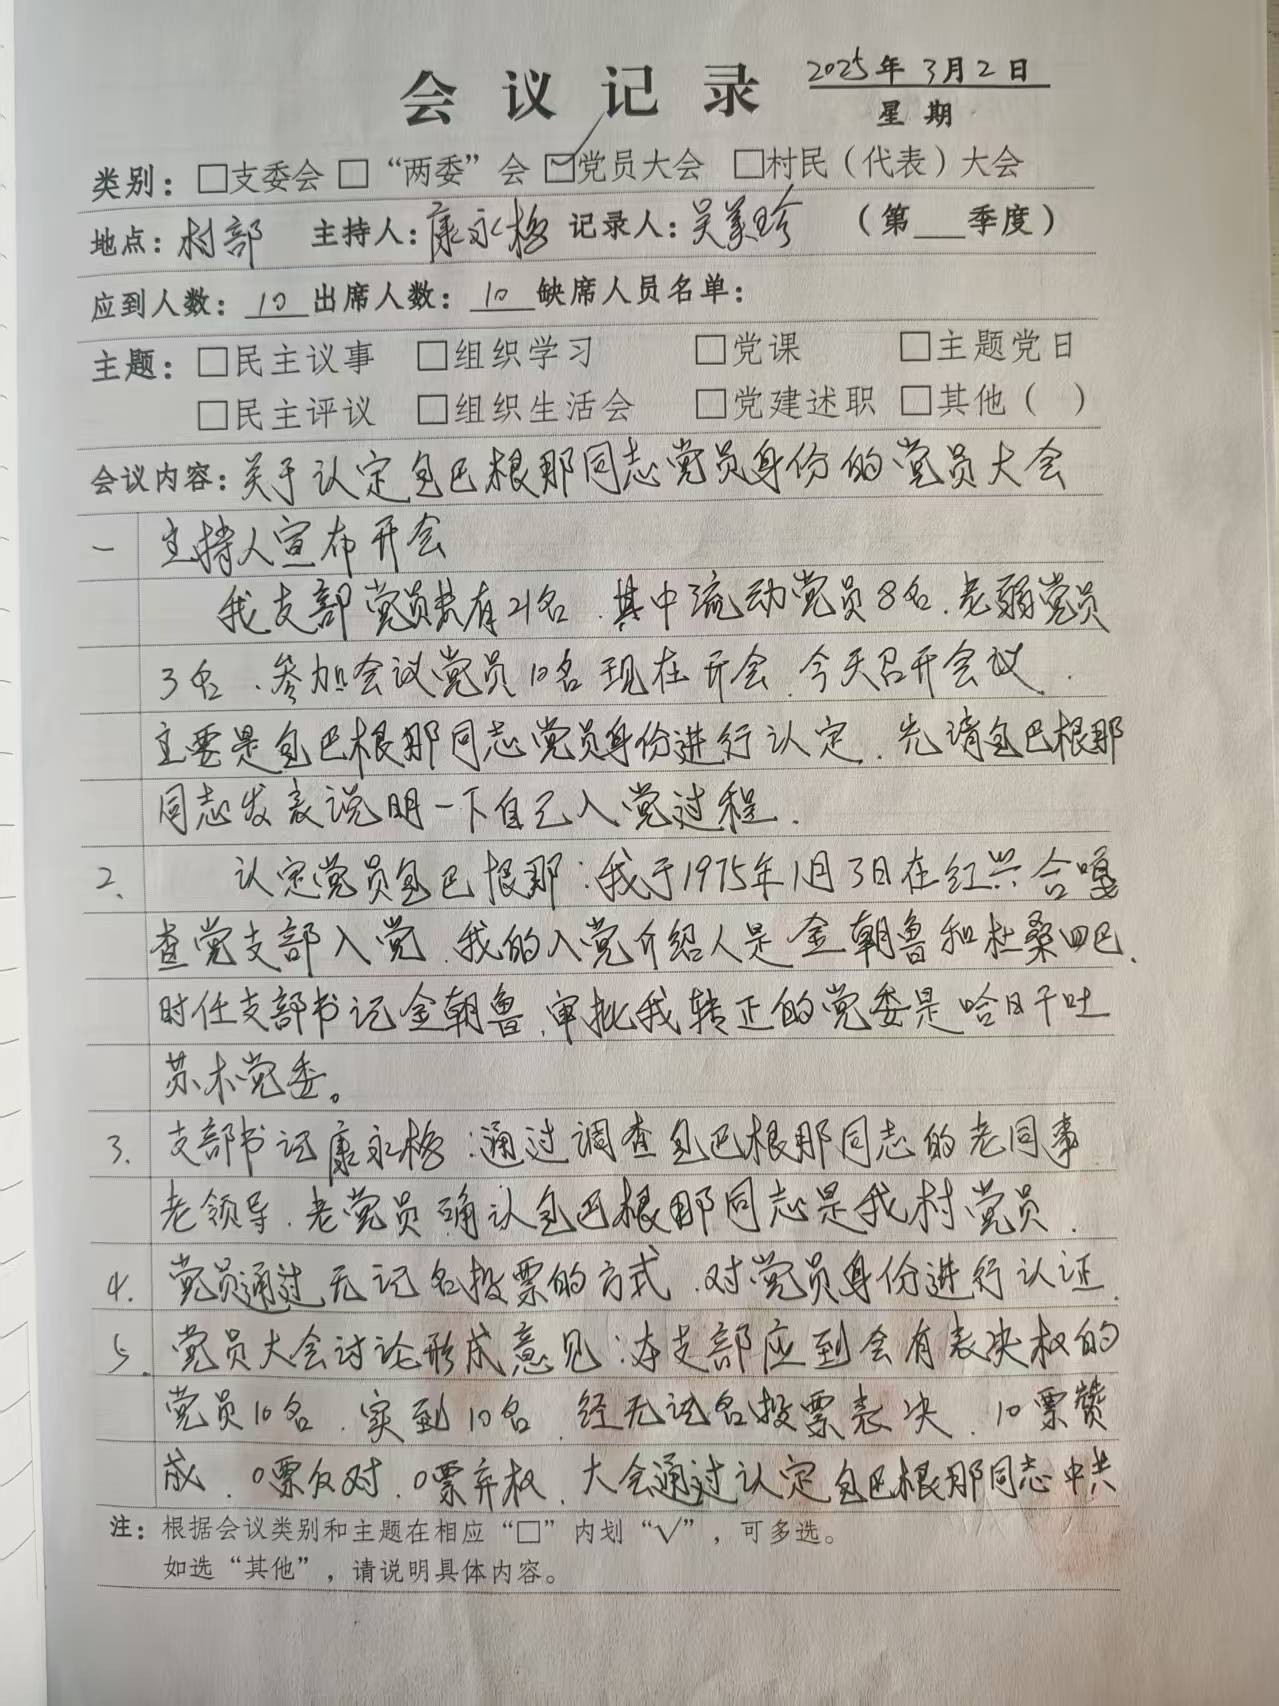 会议记录
2025年3月2日
星期
类别：□支委会 □“两委”会 ☑党员大会 □村民（代表）大会
地点：村部 主持人：康永梅 记录人：吴美珍 （第___季度）
应到人数：10 出席人数：10 缺席人员名单：
主题：□民主议事 □组织学习 □党课 □主题党日
□民主评议 □组织生活会 □党建述职 □其他（ ）
会议内容：关于认定包巴根那同志党员身份的党员大会
一 主持人宣布开会
我支部党员共有21名、其中流动党员8名、老弱党员
3名、参加会议党员10名现在开会、今天召开会议、
主要是包巴根那同志党员身份进行认定、先请包巴根那
同志发表说明一下自己入党过程、
2、 认定党员包巴根那：我于1975年1月3日在红兴合嘎
查党支部入党、我的入党介绍人是金朝鲁和杜桑四巴、
时任支部书记金朝鲁、审批我转正的党委是哈日干吐
苏木党委。
3、支部书记康永梅：通过调查包巴根那同志的老同事
老领导、老党员确认包巴根那同志是我村党员、
4、党员通过无记名投票的方式、对党员身份进行认证、
5、党员大会讨论形成意见：本支部应到会有表决权的
党员10名、实到10名、经无记名投票表决、10票赞
成、0票反对、0票弃权、大会通过认定包巴根那同志中共
注：根据会议类别和主题在相应“□”内划“√”，可多选。
如选“其他”，请说明具体内容。